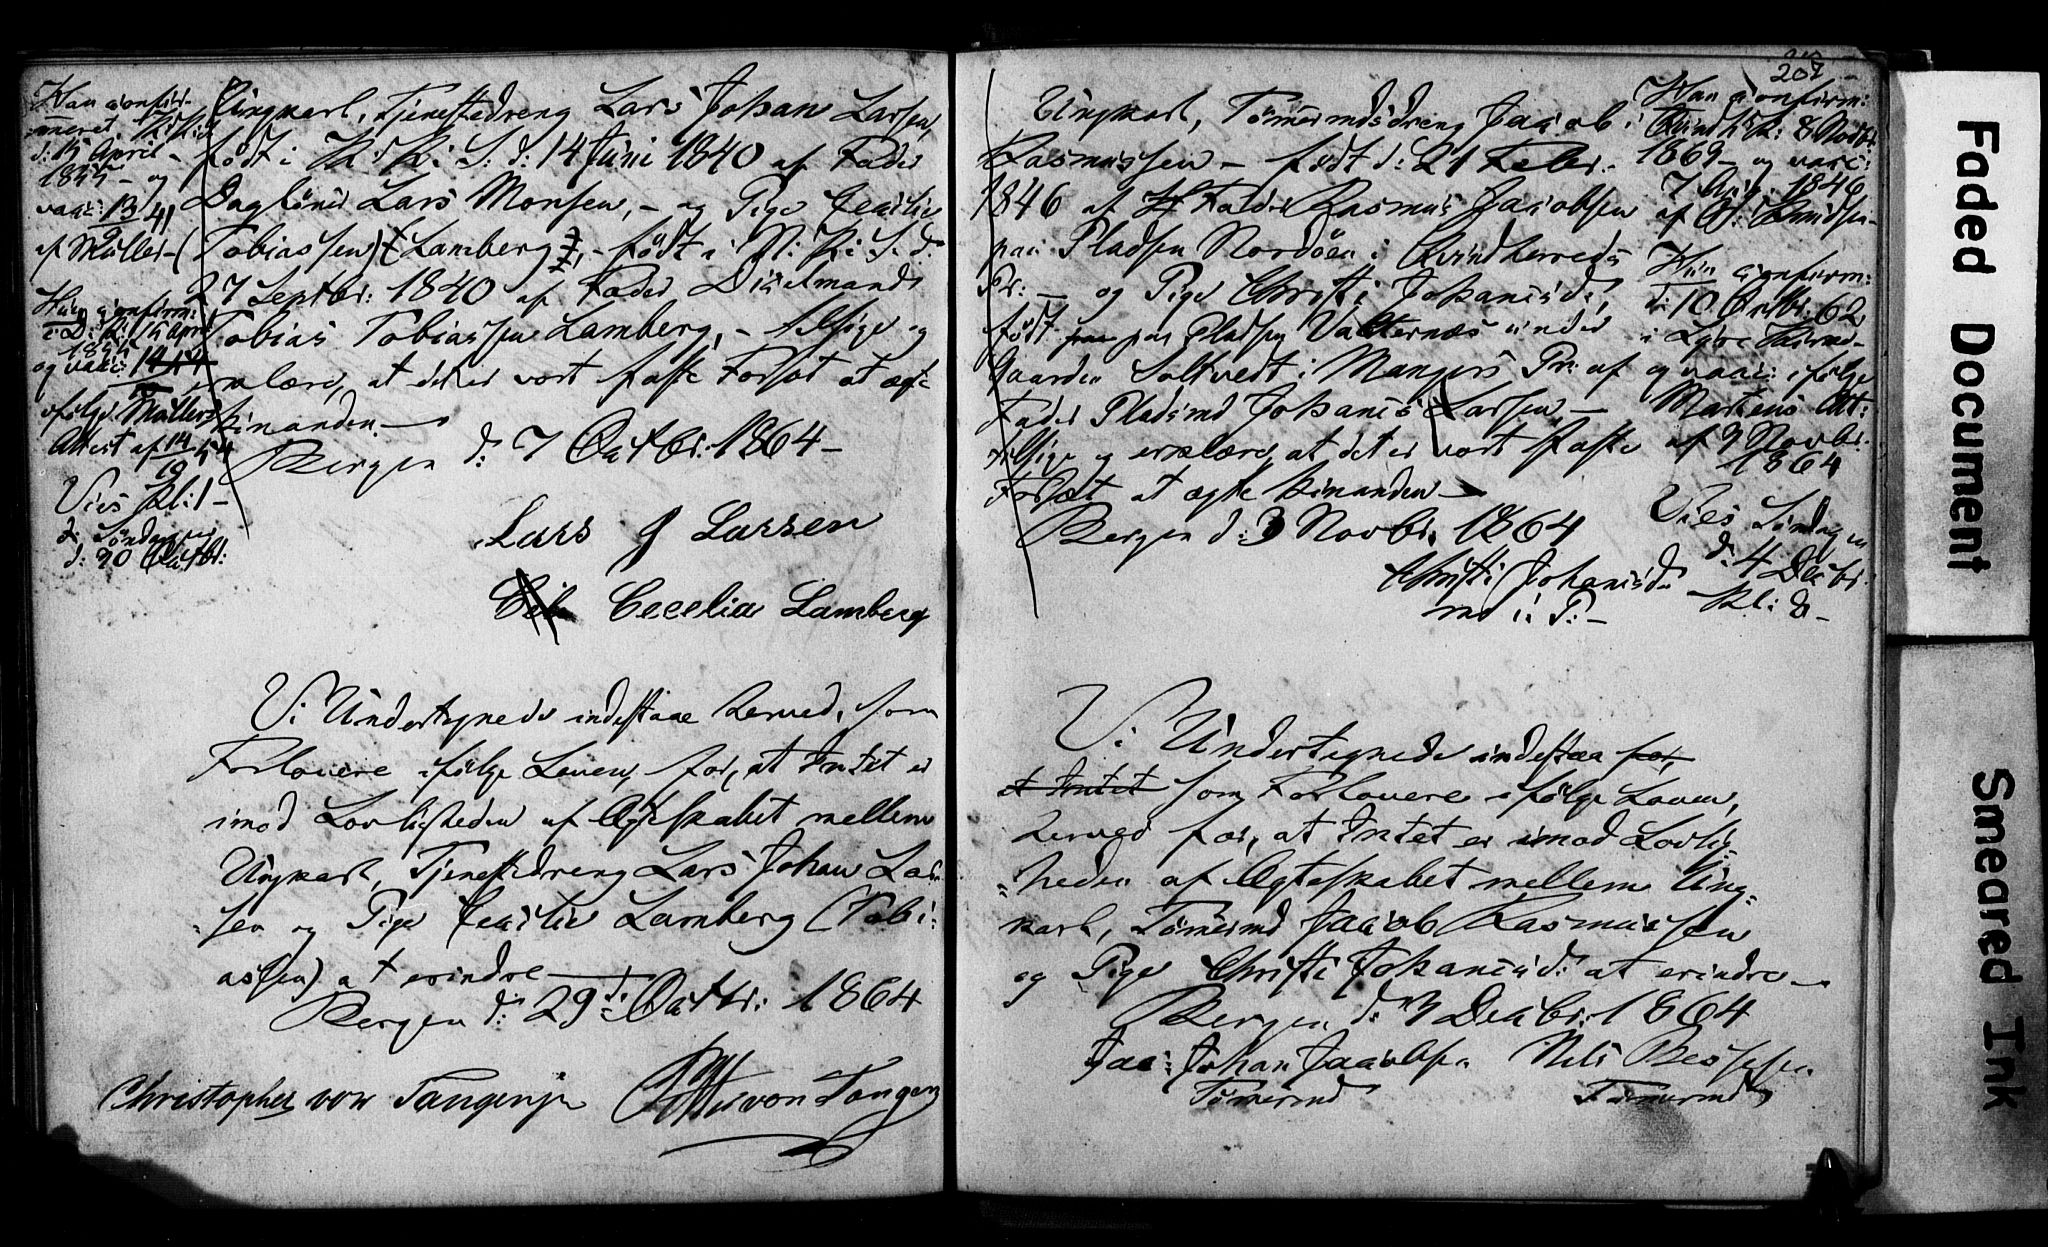 Han confir-
meret i K: K:
d: 15 April
1855 – og
vacc: 13/9 41
af Müller –
Hun confirm:
i D: K: 15 April
1855
og vacc: 14/10 41
ifølge Müllers
Attest af 14/10 54
Vies Kl: 1 –
Søndag
d: 30 Octbr:
Ungkarl, Tjenestedreng Lars Johan Larsen,
født i K: K: S: d: 14 Juni 1840 af Fader
Daglöner Lars Monsen, – og Pige Cecilie
(Tobiassen) Lamberg, – født i N: K: S: d:
27 Septbr: 1840 af Fader
Tobias Tobiassen Lamberg, – tilsige og
erklære, at det er vort faste Forsæt at ægte
hinanden. –
Bergen d: 7 Octbr: 1864 –
Lars J Larsen
Cecelia Lamberg
Vi Undertegnede indestaae herved, som
Forlovere ifølge Loven, for, at Intet er
imod Lovligheden af Ægteskabet mellem
Ungkarl, Tjenestedreng Lars Johan Lar-
sen og Pige Cecilie Lamberg (Tobi-
assen) at erindre –
Bergen d: 29de Octbr: 1864
Christopher von Tangen jr von Tangen
207
Ungkarl, Tömermdsdreng Jacob
Rasmussen – født d: 21 Febr. –
1846 af Fader Rasmus Jacobsen
paa Pladsen Nordöen i Qvindherreds
Pr: – og Pige Christi Johanisd:,
født paa Pladsen under
Gaarden Soltvedt i Mangers Pr: af
Fader Pladsmd Johanis Larsen –
tillige og erklære, at det er vort faste
Forsæt at ægte hinanden –
Bergen d: 3 Novbr. 1864
Christi Johanisd:
m i: P: –
Han confirm:
i Qvindh: K: 8 Novbr:
186 – og vacc:
7 1846
af O: Knudsen –
Hun confirm:
d: 10 62
i
og vacc: ifølge
Martens Att:
af 9 Novbr.
1864
Vies Søndagen
d: 4 Decbr.
Kl: 8 –
Vi Undertegnede indestaa for,
at Intet som Forlovere ifölge Loven,
herved for, at Intet er imod Lovlig-
heden af Ægteskabet mellem Ung-
karl, Tömermd Jacob Rasmussen
og Pige Christi Johanisd: at erindre –
Bergen d: 3 Decbr: 1864
Jac: Johan Jacobsen Nils
Tömermd Tömermd
Faded Document
Smeared Ink